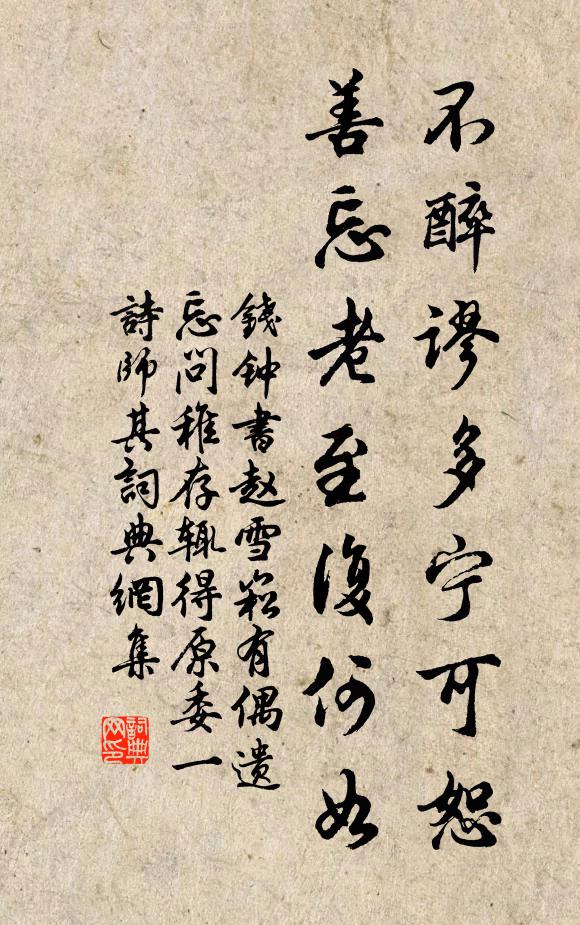 不醉谬多宁可恕
善忘老至復何如
錢钟書赵雪崧有偶遗
忘问稚存辄得原委一
詩師其詞典網集
詞典网印